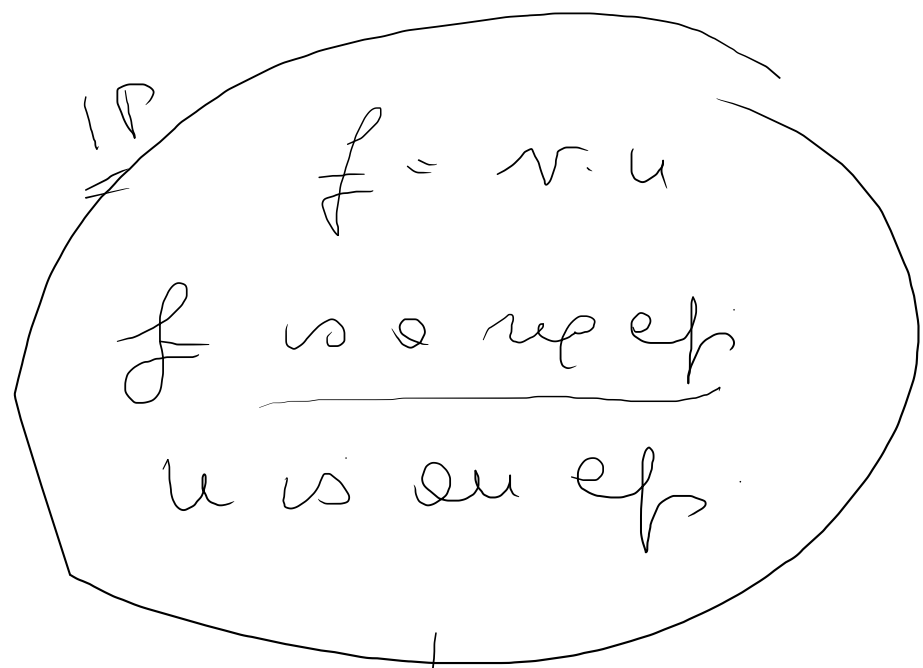 IP
f = v. u
f is a reg ep
u is an ep